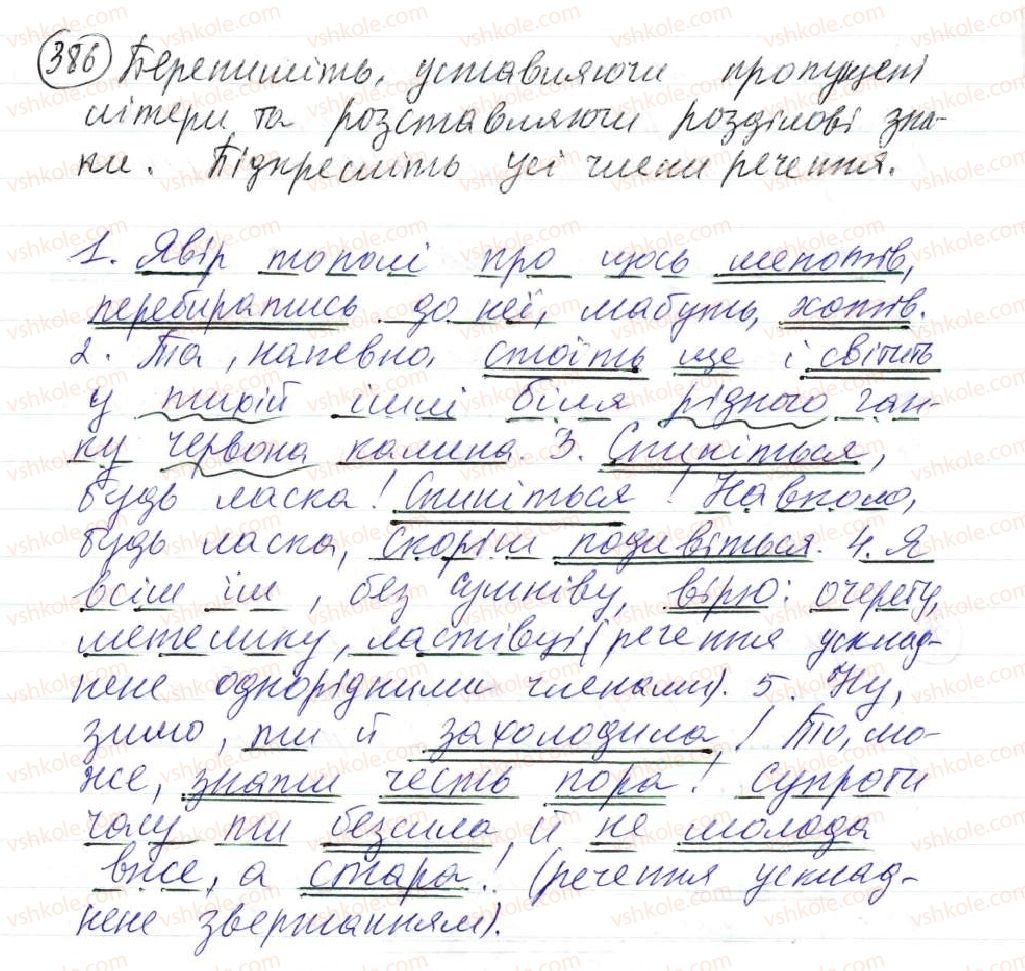 386 Перепишіть, уставляючи пропущені
літери та розставляючи розділові зна-
ки. Підкресліть усі члени речення.
1. Явір тополі про щось шепотів,
перебиратись до неї, мабуть, хотів.
2. Та, напевно, стоїть ще і світить
у тихій імлі біля рідного ган-
ку червона калина. 3. Спиніться,
будь ласка! Спиніться! Навколо,
будь ласка, скоріш подивіться. 4. Я
всім їм, без сумніву, вірю: очерету,
метелику, ластівці (речення усклад-
нене однорідними членами). 5. Ну,
зимо, ти й захолодила! То, мо-
же, знати честь пора! Супроти
часу ти безсила, й не молода
вже, а стара! (речення усклад-
нене звертанням).